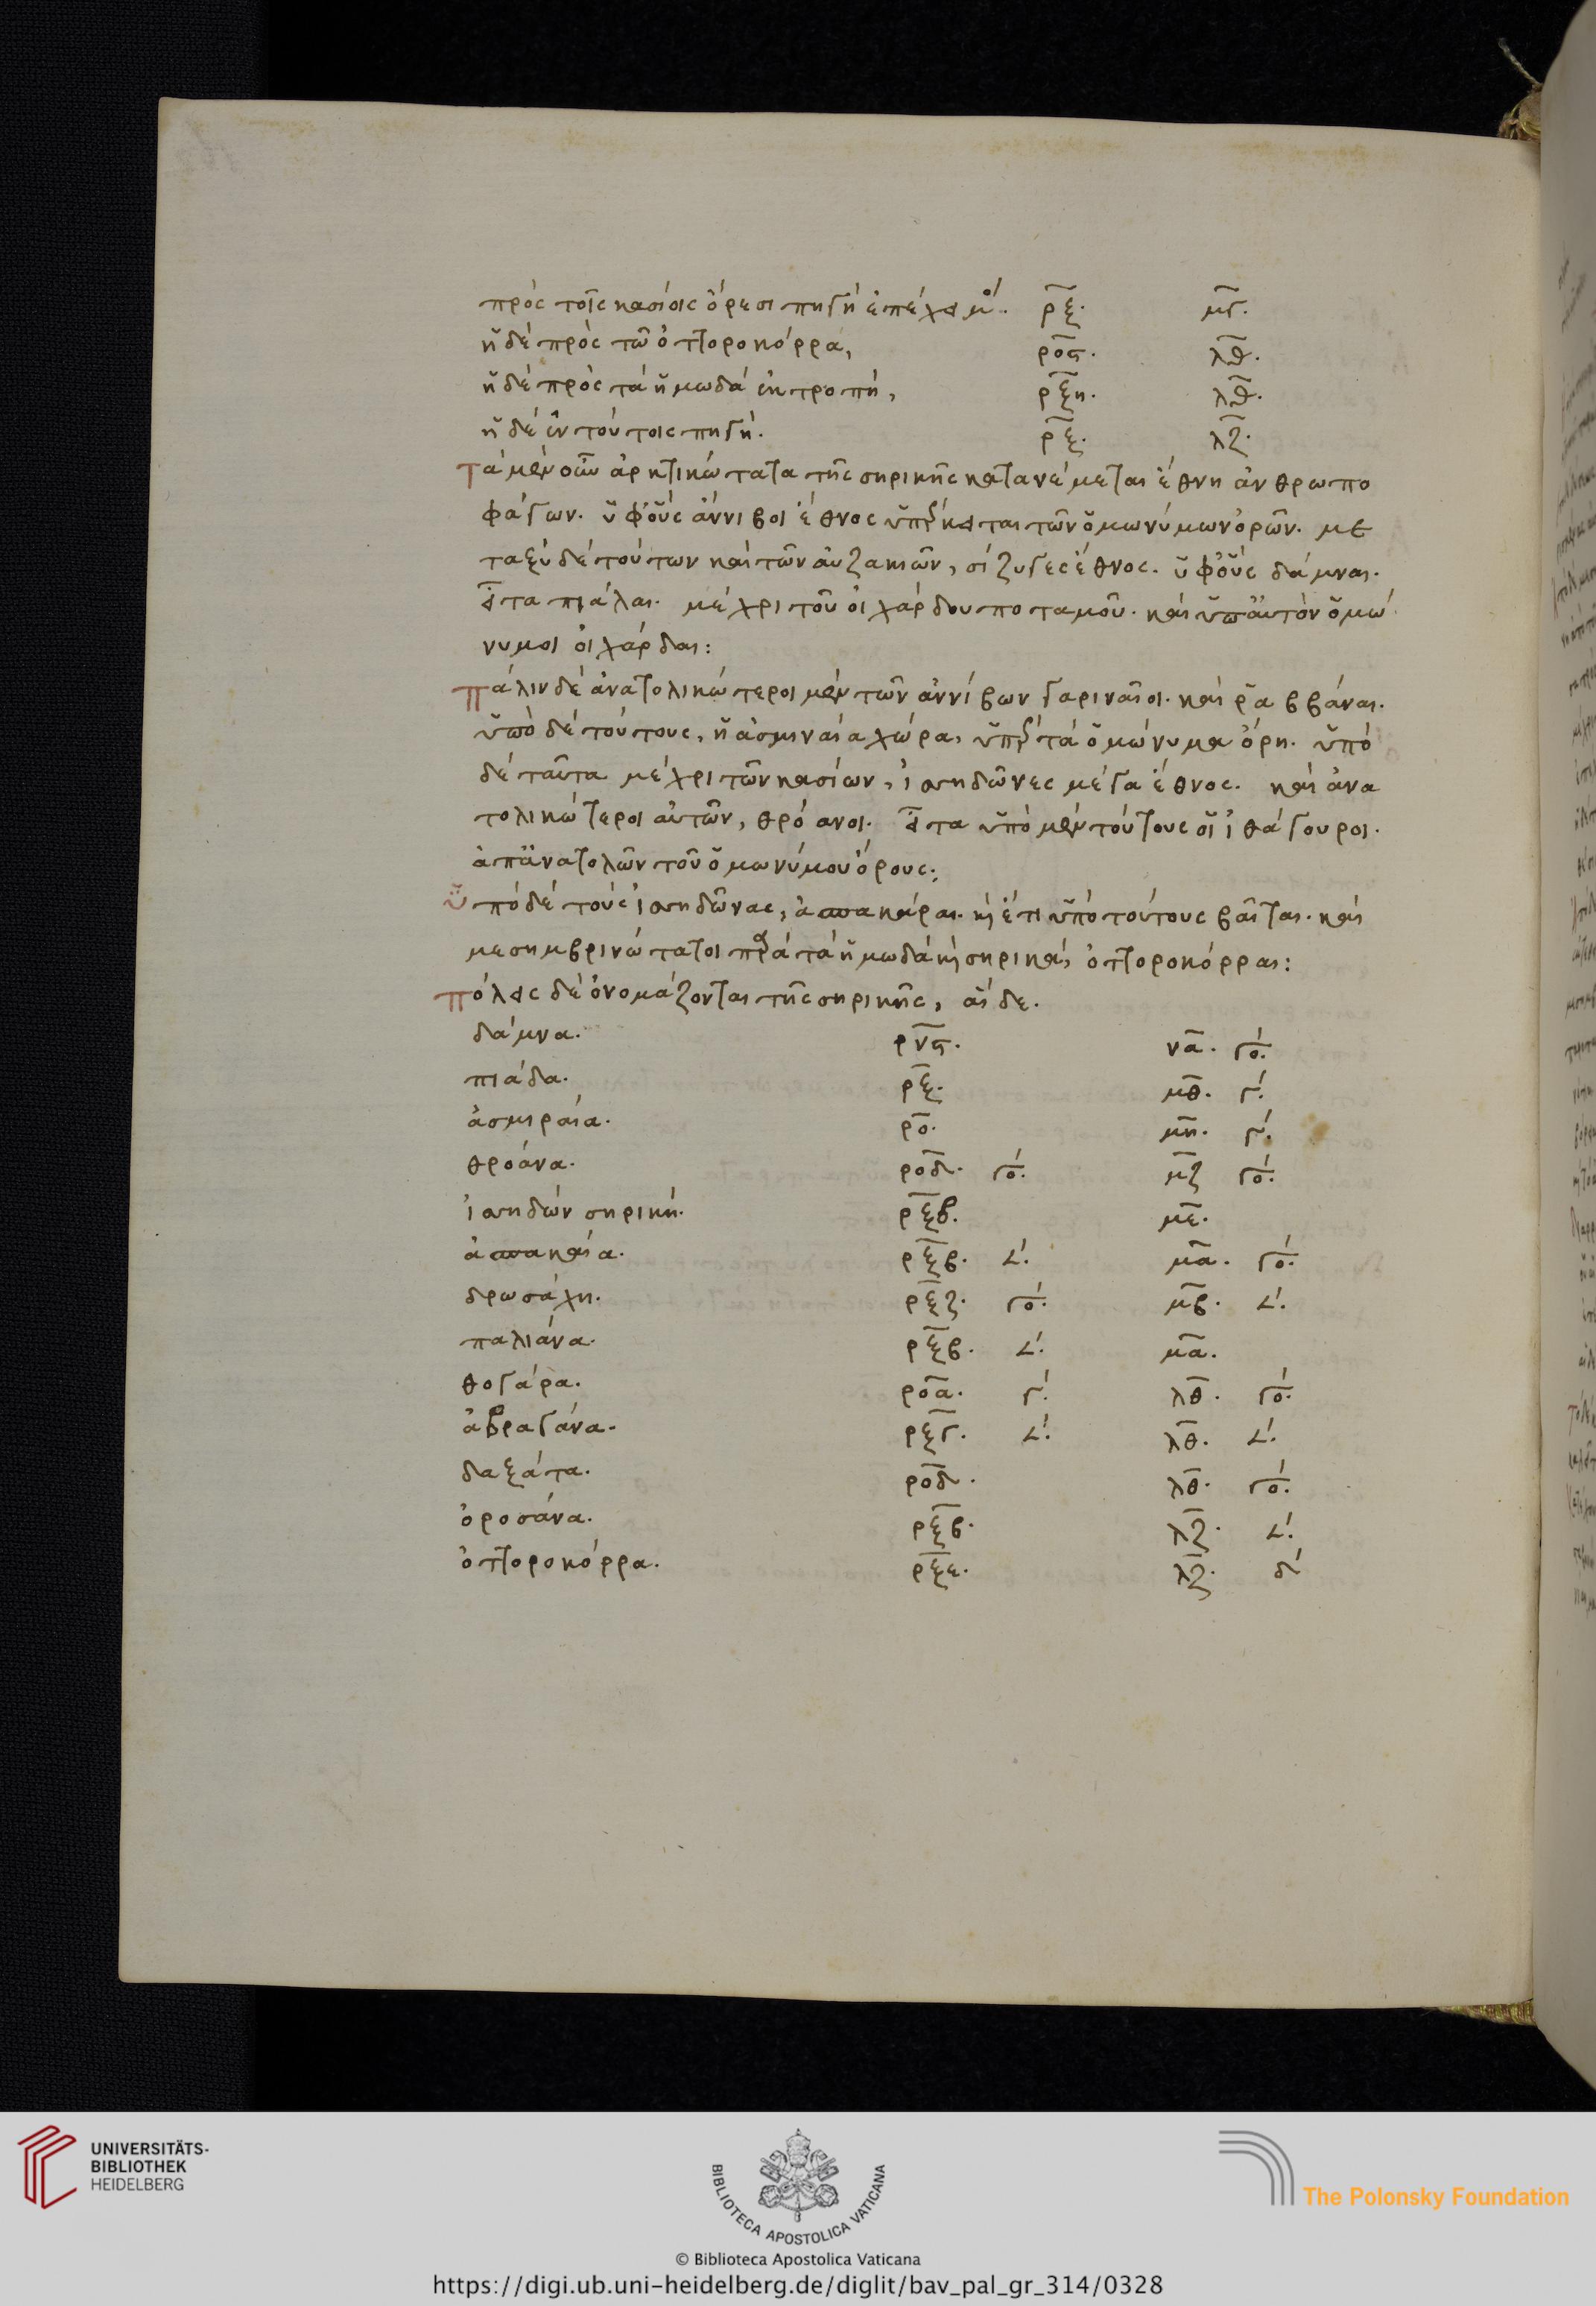 πρὸς τοῖς κασίοις ὄρεσι πηγὴ ἐπέχει μο. ρξ. μγ.
ἡ δὲ πρὸς τῶ ὀττοροκόρρα, ροϛ. λθ.
ἡ δὲ πρὸς τὰ ἠμωδὰ ἐκτροπή, ρξη. λθ.
ἡ δὲ ἐν τούτοις πηγή. ρξ. λζ.
τὰ μὲν οὖν ἀρκτικώτατα τῆς σηρικῆς κατανέμεται ἔθνη ἀνθρωπο
φάγων. ὑφ' οὓς ἄννιβοι ἔθνος ὑπέρκειται τῶν ὁμωνύμων ὀρῶν. με
ταξὺ δὲ τούτων καὶ τῶν αὐζακιῶν, σίζυγες ἔθνος. ὑφ' οὓς δάμναι.
εἶτα πιάλαι. μέχρι τοῦ οἰχάρδου ποταμοῦ. καὶ ὑπ' αὐτὸν ὁμώ
νυμοι οἰχάρδαι:
πάλιν δὲ ἀνατολικώτεροι μὲν τῶν ἀννίβων γαριναῖοι. καὶ ῥαββάναι.
ὑπὸ δὲ τούτους, ἡ ἀσμιναία χώρα, ὑπὲρ τὰ ὁμώνυμα ὄρη. ὑπὸ
δὲ ταῦτα μέχρι τῶν κασίων, ἰσσηδῶνες μέγα ἔθνος. καὶ ἀνα
τολικώτεροι αὐτῶν, θρόανοι. εἶτα ὑπὸ μὲν τούτους οἱ ἰθάγουροι.
ἀπ' ἀνατολῶν τοῦ ὁμωνύμου ὄρους:
ὑπὸ δὲ τοὺς ἰσσηδῶνας, ἀσπακάραι. κὶ ἔτι ὑπὸ τούτους βαῖται. καὶ
μεσημβρινώτατοι παρὰ τὰ ἠμωδὰ κὶ σηρικὰ, ὀττοροκόρραι:
πόλεις δὲ ὀνομάζονται τῆς σηρικῆς, αἵδε.
δάμνα. ρνϛ. να. γο.
πιάδα. ρξ. μθ. γ.
ἀσμιραία. ρο. μη. γ.
θροάνα. ροδ. γο. μζ γο.
ἰσσηδὼν σηρική. ρξβ. με.
ἀσπακαία. ρξβ. 𐅵. μα. γο.
δρωσάχη. ρξζ. γο. μβ. 𐅵.
παλιάνα. ρξβ. 𐅵. μα.
θογάρα. ροα. γ. λθ. γο.
ἀβραγάνα. ρξγ. 𐅵. λθ. 𐅵.
δαξάτα. ροδ. λθ. γο.
ὀροσάνα. ρξβ. λζ. 𐅵.
ὀττοροκόρρα. ρξε. λζ. δ
UNIVERSITÄTS-
BIBLIOTHEK
HEIDELBERG
BIBLIOTECA APOSTOLICA VATICANA
The Polonsky Foundation
© Biblioteca Apostolica Vaticana
https://digi.ub.uni-heidelberg.de/diglit/bav_pal_gr_314/0328